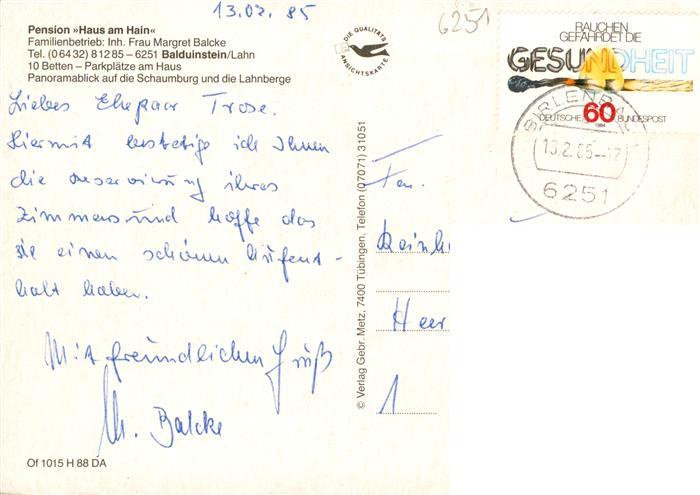 13.02.85
Pension »Haus am Hain«
Familienbetrieb: Inh. Frau Margret Balcke
Tel. (0 64 32) 8 12 85 – 6251 Balduinstein/Lahn
10 Betten – Parkplätze am Haus
Panoramablick auf die Schaumburg und die Lahnberge
Liebes Ehepaar Trose.
Hiermit bestetige ich Ihnen
die reservirung ihres
Zimmers und hoffe das
sie einen schönen Aufent-
halt haben.
Mit freundlichen Gruß
M. Balcke
Of 1015 H 88 DA
DIE QUALITÄTS
ANSICHTSKARTE
© Verlag Gebr. Metz, 7400 Tübingen, Telefon (07071) 31051
6251
RAUCHEN
GEFÄHRDET DIE
GESUNDHEIT
DEUTSCHE 60 BUNDESPOST
1984
13.2.85-17
6251
Fam.
Reinh
Heer
1